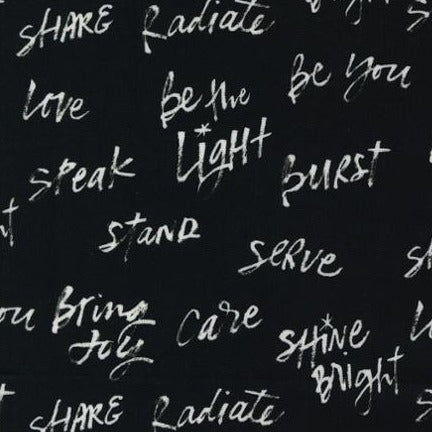 SHARE Radiate
Be You
Love
Be the
Light
Speak
BURST
STAND
SERVE
Bring
Joy
Care
SHiNE
BRight
SHARE Radiate